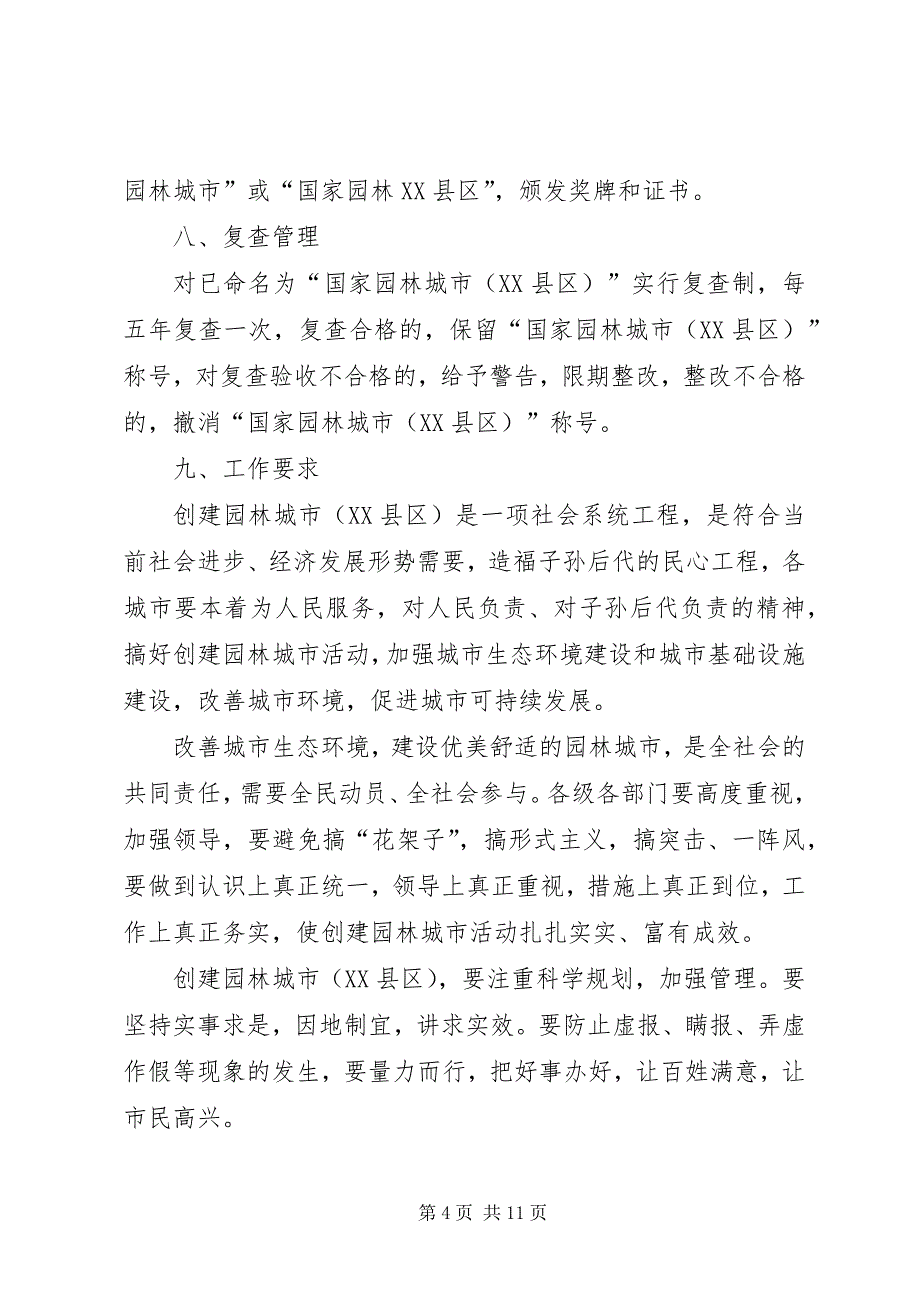 园林城市”或“国家园林 XX 县区”，颁发奖牌和证书。
八、复查管理
对已命名为“国家园林城市（XX 县区）”实行复查制，每
五年复查一次，复查合格的，保留“国家园林城市（XX 县区）”
称号，对复查验收不合格的，给予警告，限期整改，整改不合格
的，撤消“国家园林城市（XX 县区）”称号。
九、工作要求
创建园林城市（XX 县区）是一项社会系统工程，是符合当
前社会进步、经济发展形势需要，造福子孙后代的民心工程，各
城市要本着为人民服务，对人民负责、对子孙后代负责的精神，
搞好创建园林城市活动，加强城市生态环境建设和城市基础设施
建设，改善城市环境，促进城市可持续发展。
改善城市生态环境，建设优美舒适的园林城市，是全社会的
共同责任，需要全民动员、全社会参与。各级各部门要高度重视，
加强领导，要避免搞“花架子”，搞形式主义，搞突击、一阵风，
要做到认识上真正统一，领导上真正重视，措施上真正到位，工
作上真正务实，使创建园林城市活动扎扎实实、富有成效。
创建园林城市（XX 县区），要注重科学规划，加强管理。要
坚持实事求是，因地制宜，讲求实效。要防止虚报、瞒报、弄虚
作假等现象的发生，要量力而行，把好事办好，让百姓满意，让
市民高兴。
第 4 页 共 11 页